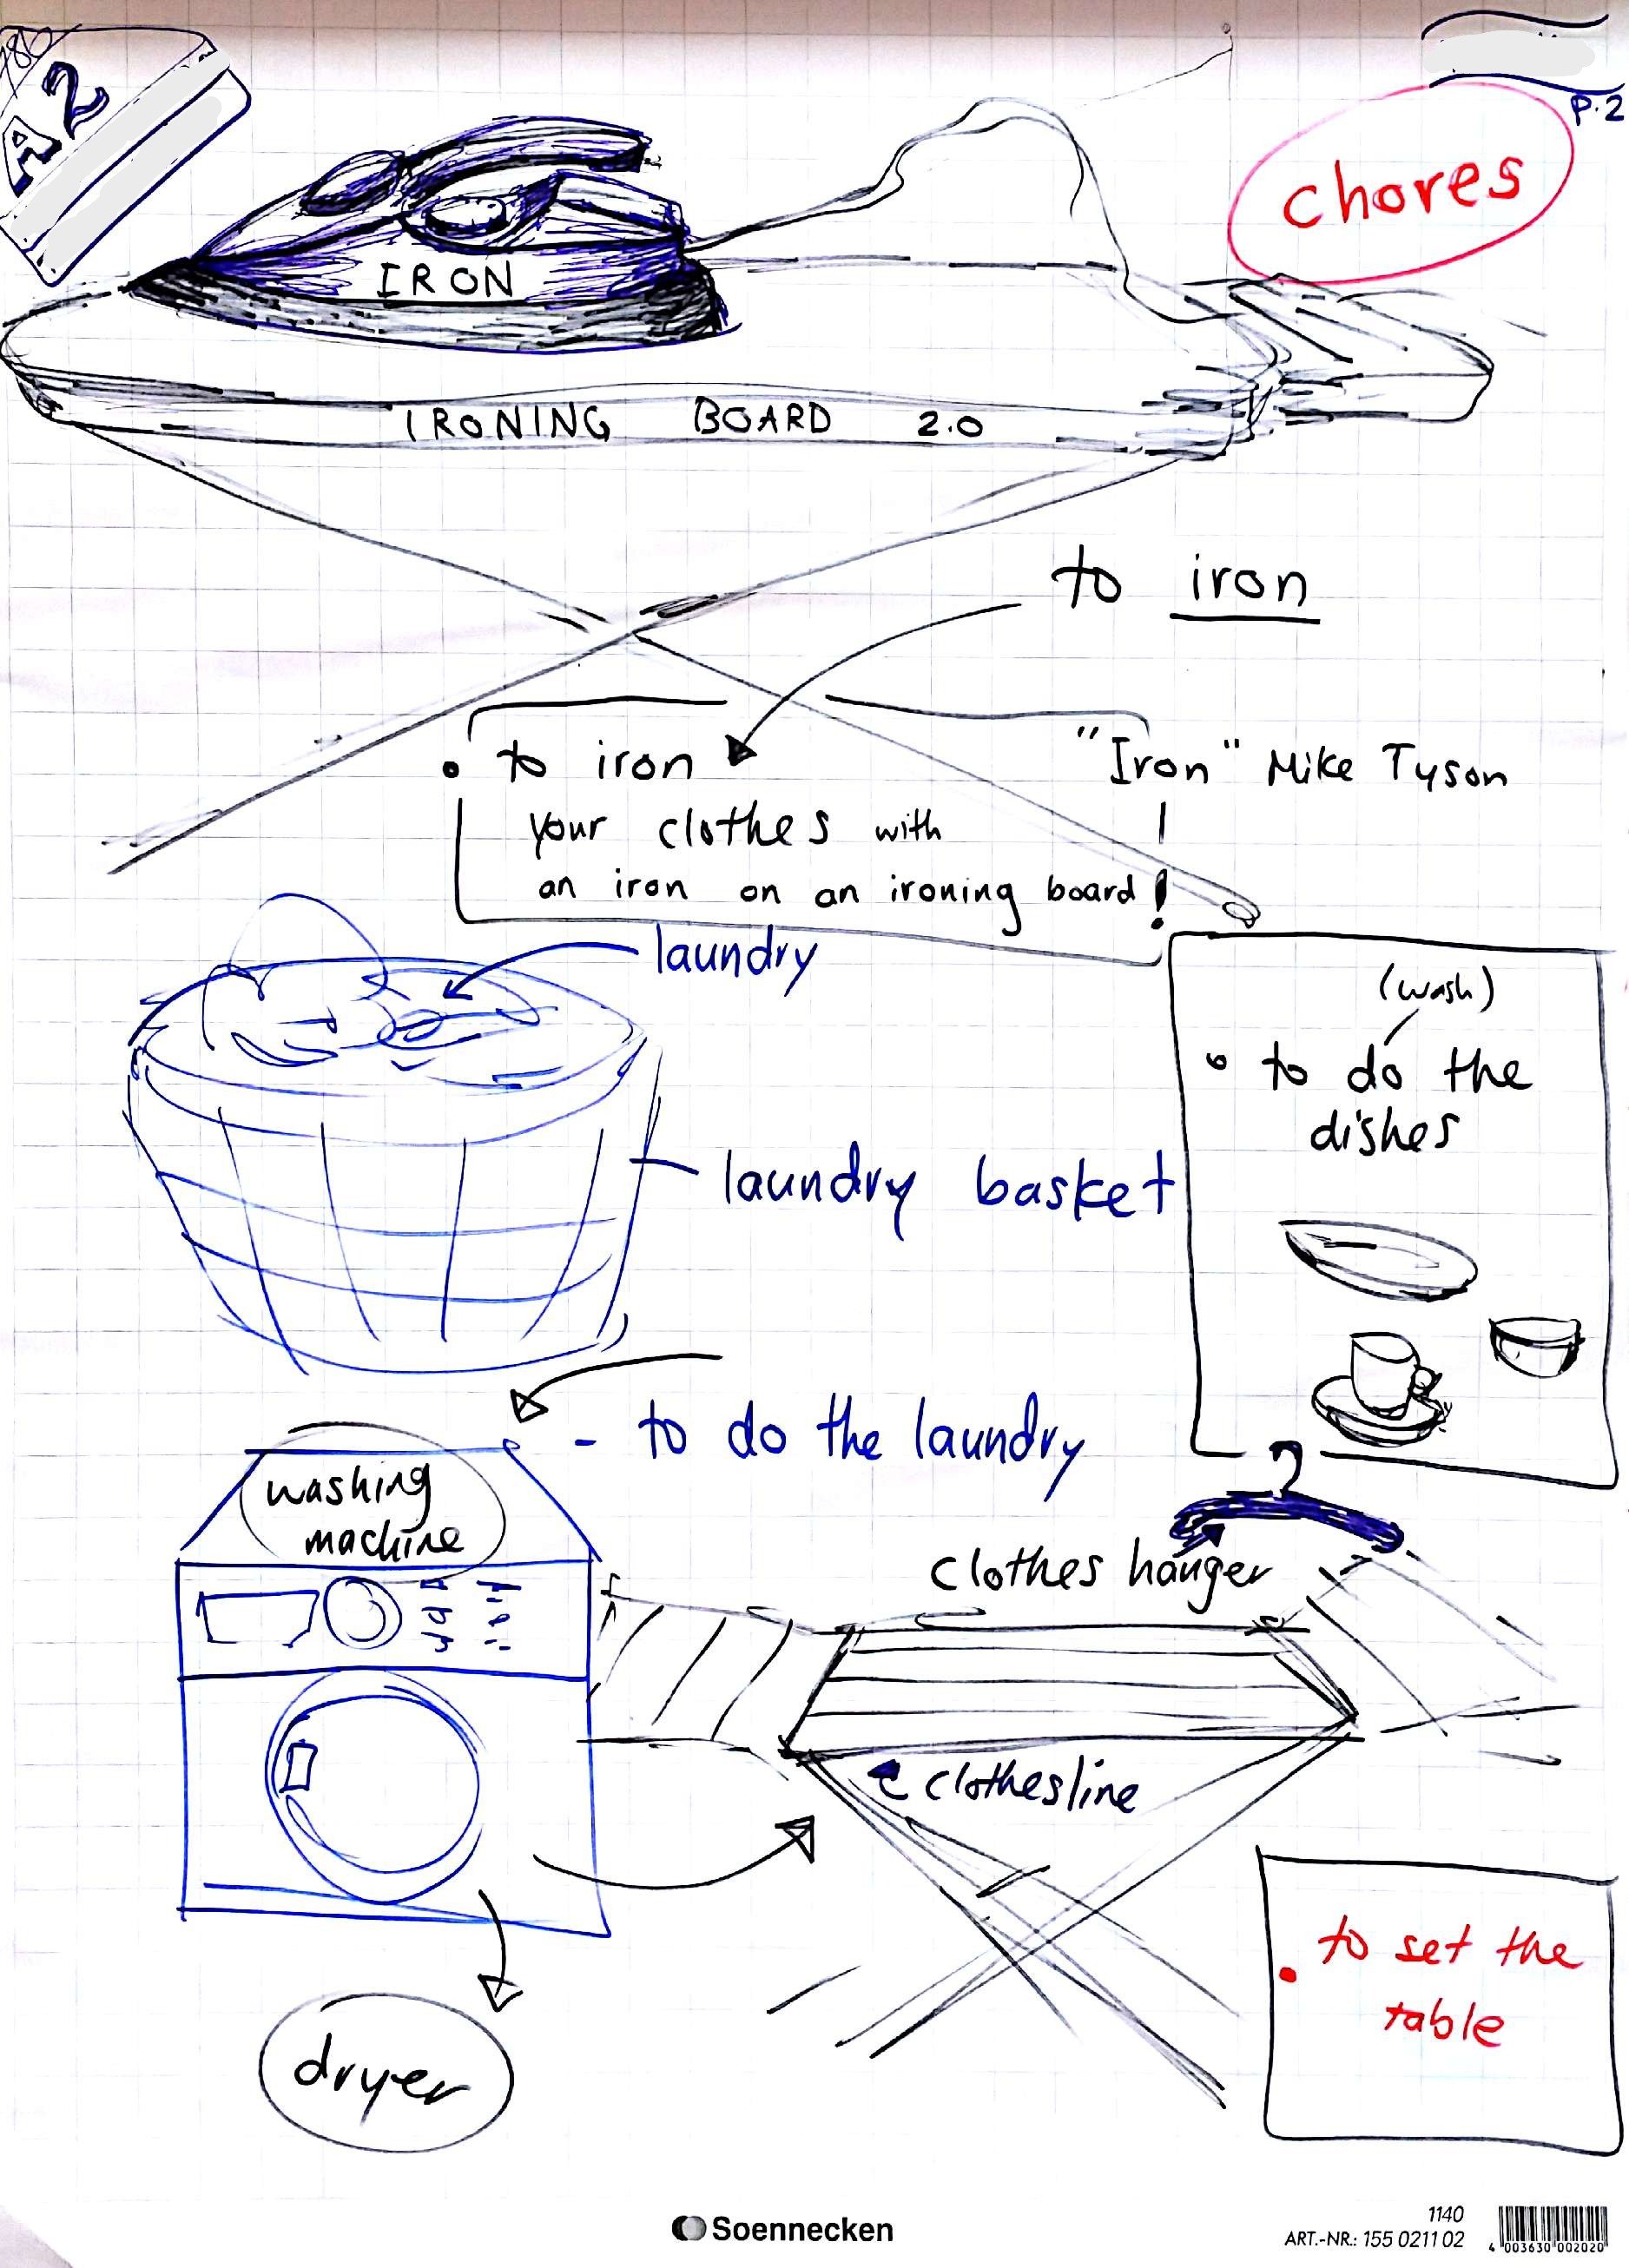 A2
P.2
chores
IRON
IRONING BOARD 2.0
to iron
• to iron
your clothes with
an iron on an ironing board!
"Iron" Mike Tyson
laundry
(wash)
• to do the
dishes
laundry basket
- to do the laundry
washing
machine
clothes hanger
clothesline
• to set the
table
dryer
Soennecken
1140
ART.-NR.: 155 0211 02
4 003630 002020